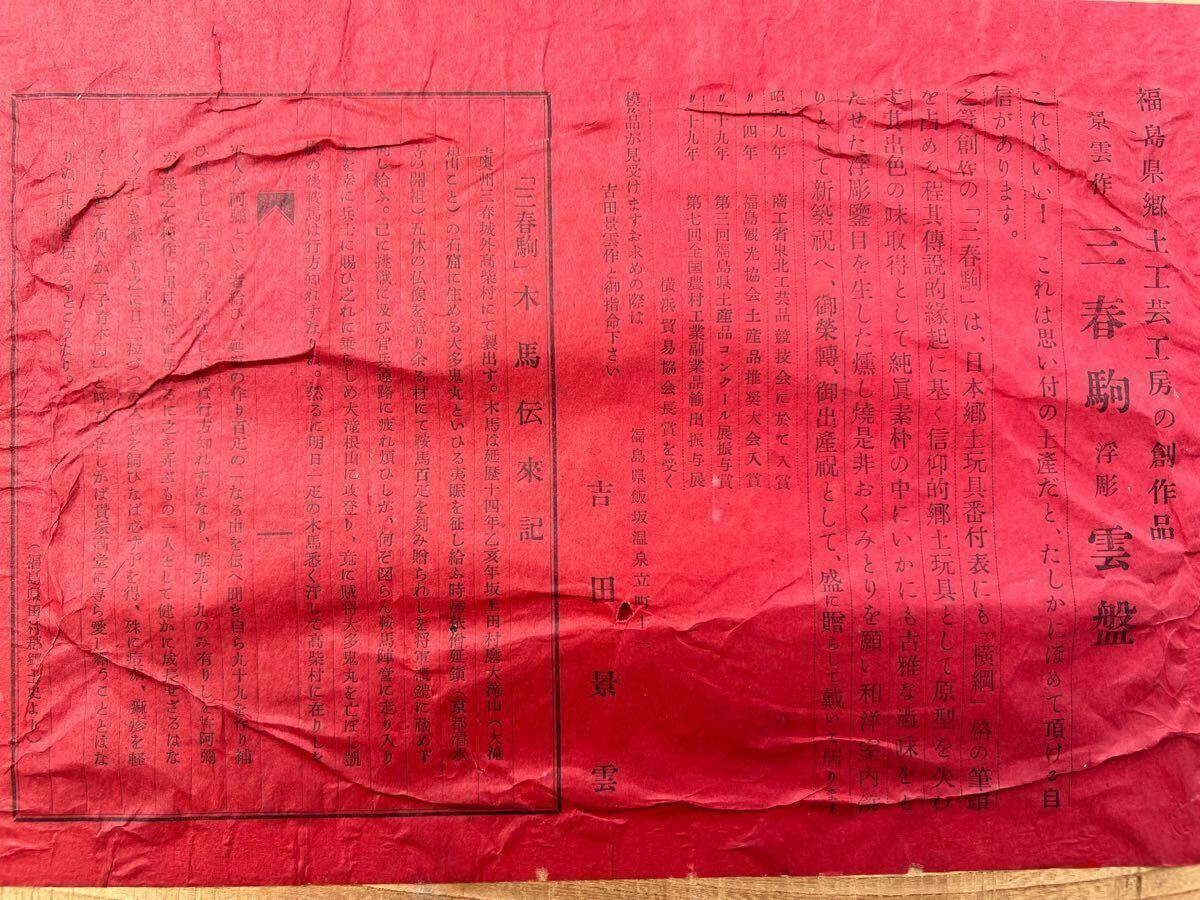 福島県郷土工芸工房の創作品
景雲作 三春駒 浮彫 雲盤
これはいい! これは思い付の土産だと、たしかにほめて頂ける自
信があります。
之等創作の「三春駒」は、日本郷土玩具番付表にも「横綱」格の筆頭
を占める程其傳説的緣起に基く信仰的郷土玩具として原型を失
ず其出色の味取得として純眞素朴の中にいかにも古雅な
たせた浮彫鑿目を生した燻し燒是非おくみとりを願い和洋室内飾
りとして新築祝へ、御榮轉、御出産祝として、盛に贈らして戴いて居ります
昭和九年 商工省東北工芸品競技会に於て入賞
〃十四年 福島観光協会土産品推奨大会入賞
〃十九年 第三回福島県土産品コンクール展振与賞
〃二十九年 第七回全国農村工業副業品輸出振与展
横浜貿易協会長賞を受く
模造品が見受けますお求めの際は
吉田景雲作と御指命下さい
福島県飯坂温泉立町十二
吉田景雲
「三春駒」木馬伝來記
奥州三春城外高柴村にて製出す。木馬は延歴十四年乙亥年坂上田村麿大滝山(大滝
根山こと)の石窟に住める大多鬼丸といひる夷賑を征し給ふ時帰依僧延鎭(京都清水
寺の開祖)五体の仏像を造り余る材にて鞍馬百疋を刻み贈られしを将軍護鎧に蔵め下
向し給ふ。己に挑戦に及び官兵遠路に疲れ煩ひしが、何ぞ図らん鞍馬陣営に走り入り
を幸に兵士に賜ひ之れに乗らしめ大滝根山に攻登り、竟に賊将大多鬼丸を亡ぼし凱
の後鞍馬は行方知れずたりぬ。然るに明日一疋の木馬悉く汗して高柴村に在りしを
の作り百疋の一なる由を伝へ聞き自ら九十九を作り補
は行方知れずになり、唯九十九のみ有りしを
孫之を
なき家にも之に日三粒づつの大豆を飼ひなば必ず子を得、殊に痘瘡、麻疹を軽
くするとて何人か「子育木馬」と呼び
りぬと其聞き伝ふるところなり。
(福島県田村郡郷土史より)